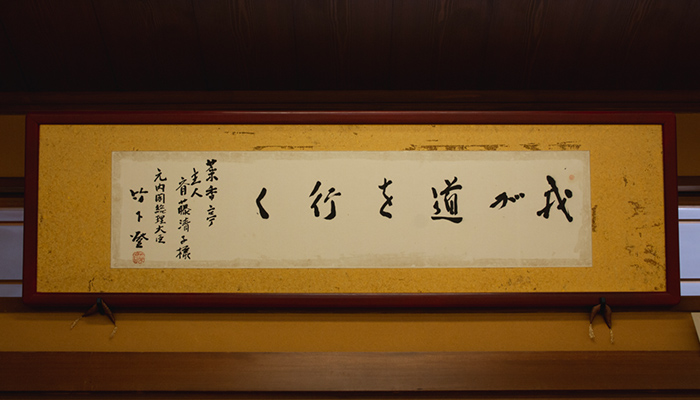 我が道を行く
菜香亭
主人
齊藤清子様
元内閣総理大臣
竹下登